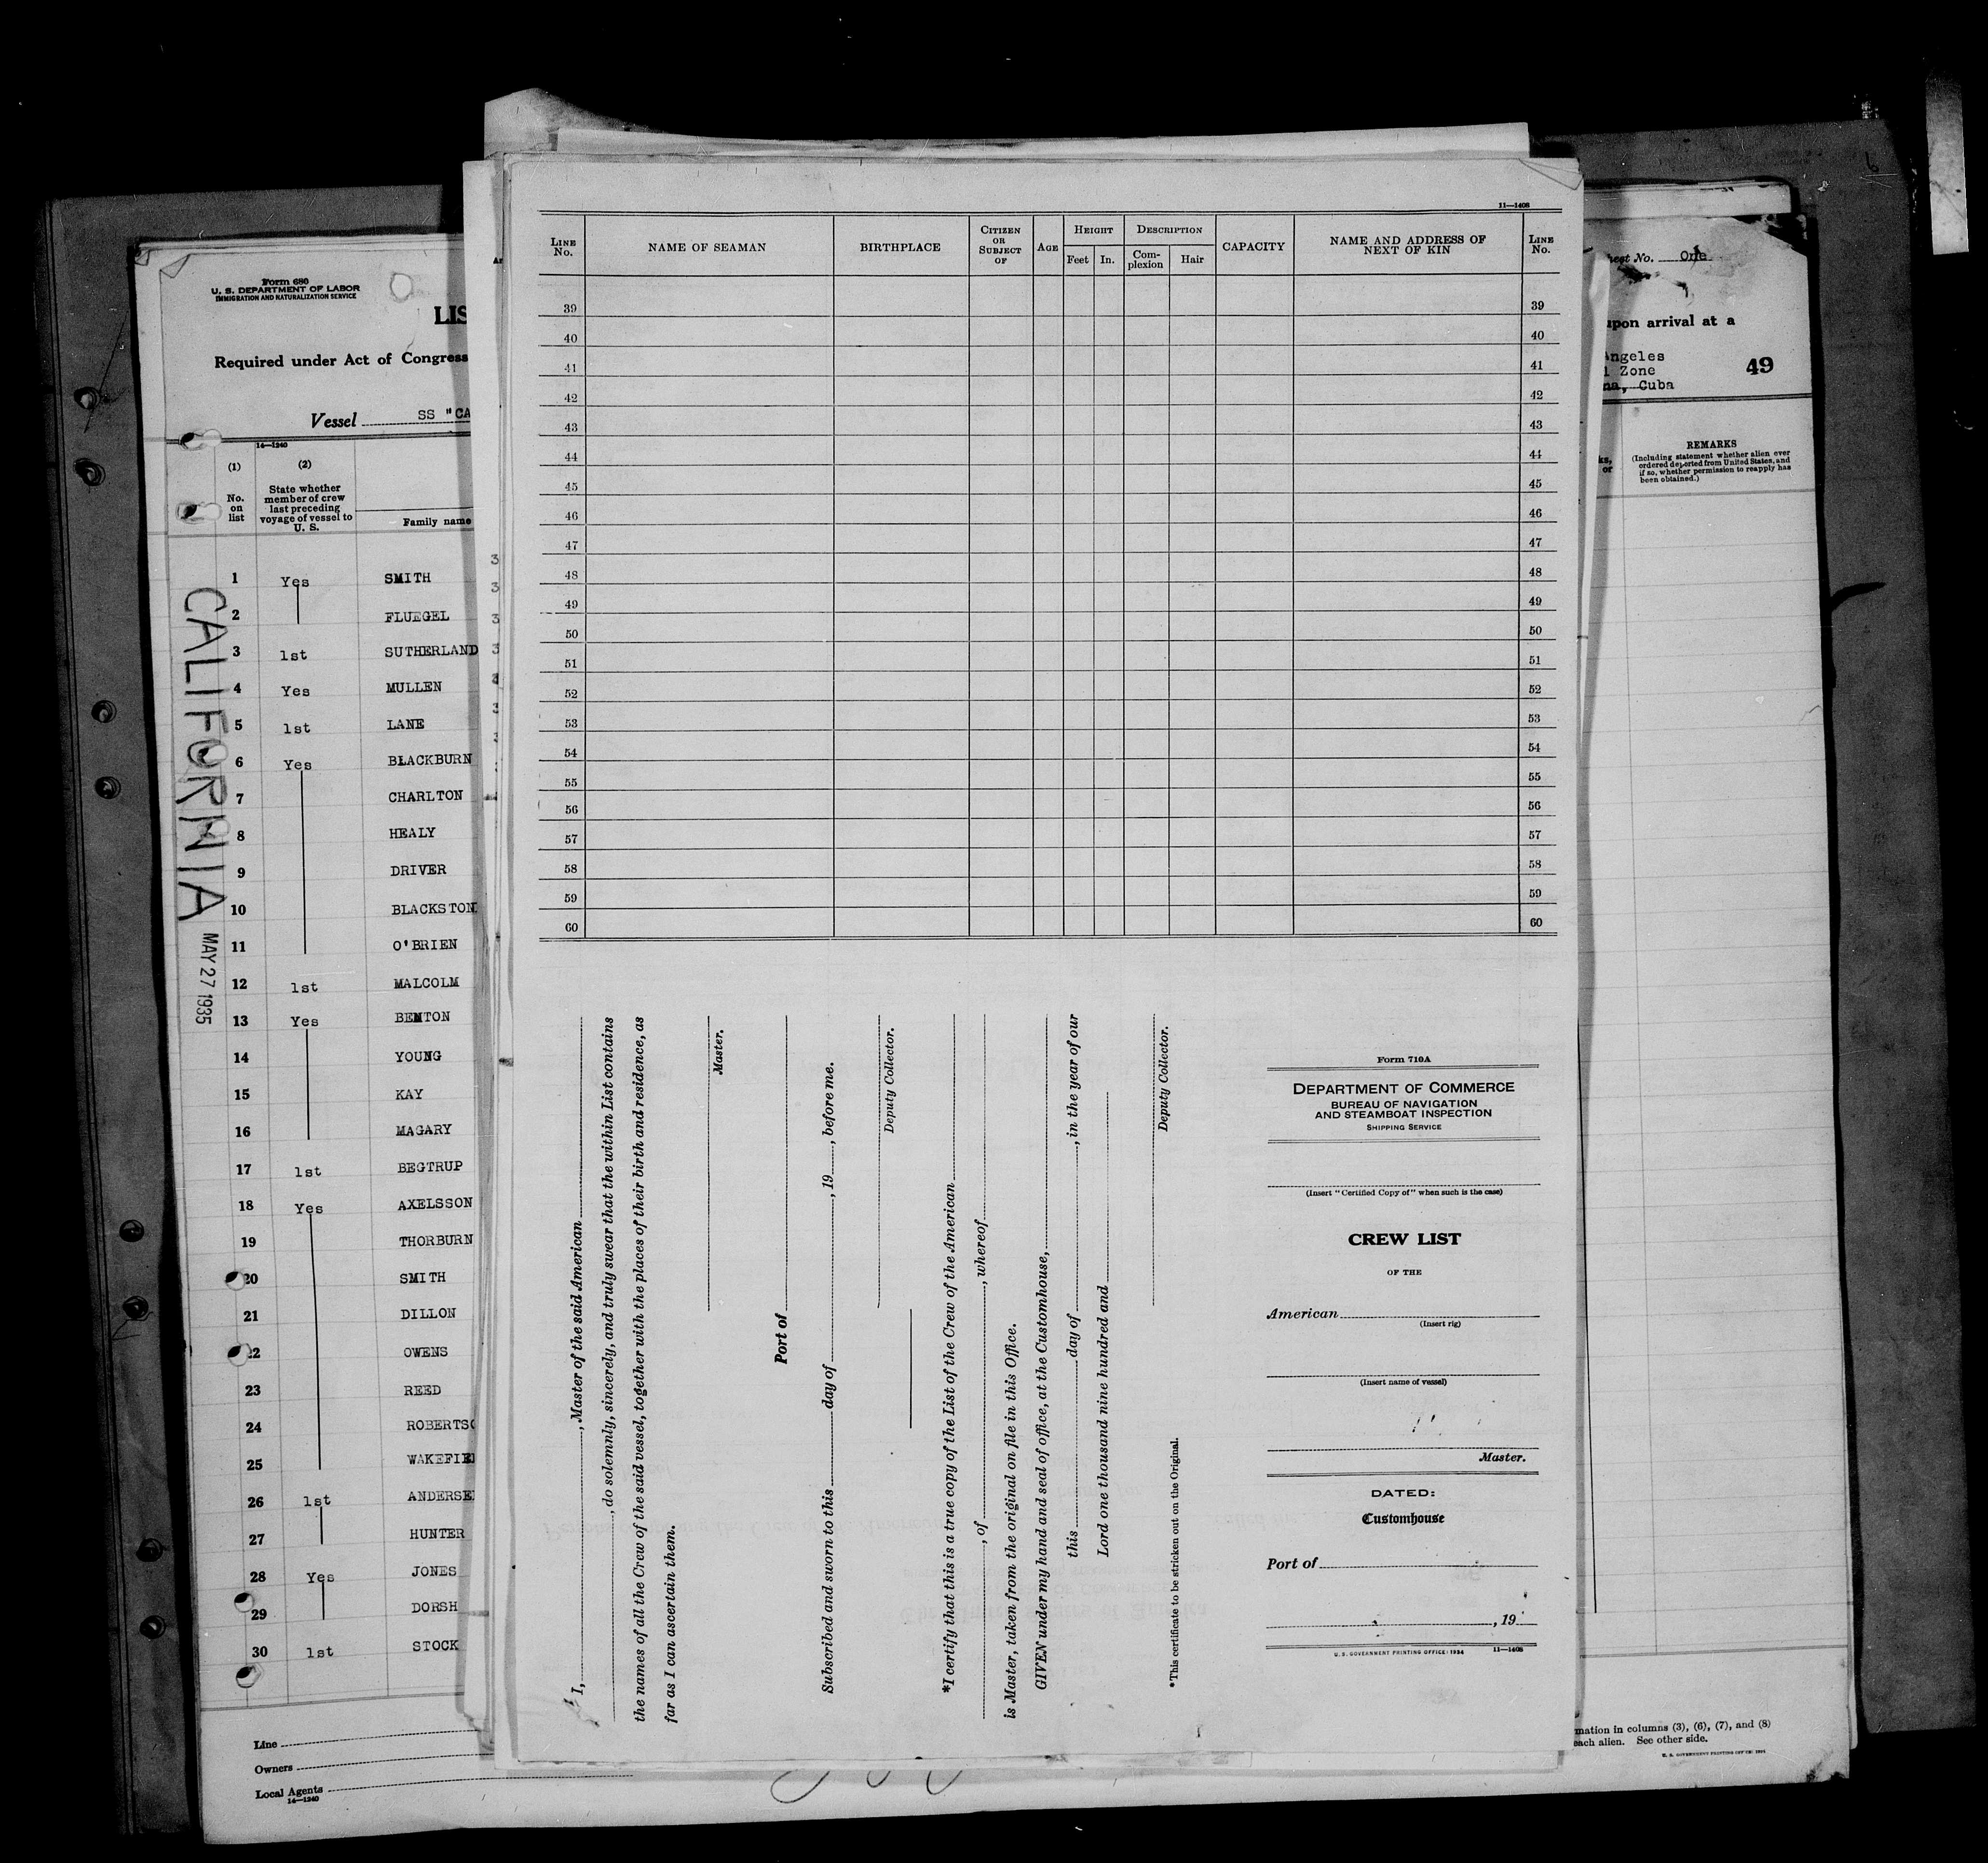 Form 680
U. S. DEPARTMENT OF LABOR
IMMIGRATION AND NATURALIZATION SERVICE
LIS
Required under Act of Congress
Vessel SS "CA
14—1240
(1) (2)
No. on list
State whether member of crew last preceding voyage of vessel to U. S.
Family name
1 Yes SMITH
2 FLUEGEL
3 1st SUTHERLAND
4 Yes MULLEN
5 1st LANE
6 Yes BLACKBURN
7 CHARLTON
8 HEALY
9 DRIVER
10 BLACKSTON
11 O'BRIEN
12 1st MALCOLM
13 Yes BENTON
14 YOUNG
15 KAY
16 MAGARY
17 1st BEGTRUP
18 Yes AXELSSON
19 THORBURN
20 SMITH
21 DILLON
22 OWENS
23 REED
24 ROBERTSO
25 WAKEFIE
26 1st ANDERSE
27 HUNTER
28 Yes JONES
29 DORSH
30 1st STOCK
CALIFORNIA
MAY 27 1935
Line
Owners
Local Agents
14—1240
11—1408
LINE No. NAME OF SEAMAN BIRTHPLACE CITIZEN OR SUBJECT OF AGE HEIGHT Feet In. DESCRIPTION Complexion Hair CAPACITY NAME AND ADDRESS OF NEXT OF KIN LINE No.
39 39
40 40
41 41
42 42
43 43
44 44
45 45
46 46
47 47
48 48
49 49
50 50
51 51
52 52
53 53
54 54
55 55
56 56
57 57
58 58
59 59
60 60
I, , Master of the said American
, do solemnly, sincerely, and truly swear that the within List contains
the names of all the Crew of the said vessel, together with the places of their birth and residence, as
far as I can ascertain them.
Master.
Port of
Subscribed and sworn to this day of , 19 , before me.
Deputy Collector.
*I certify that this is a true copy of the List of the Crew of the American
, of , whereof
is Master, taken from the original on file in this Office.
GIVEN under my hand and seal of office, at the Customhouse,
this day of , in the year of our
Lord one thousand nine hundred and
Deputy Collector.
*This certificate to be stricken out on the Original.
Form 710A
DEPARTMENT OF COMMERCE
BUREAU OF NAVIGATION
AND STEAMBOAT INSPECTION
SHIPPING SERVICE
(Insert "Certified Copy of" when such is the case)
CREW LIST
OF THE
American
(Insert rig)
(Insert name of vessel)
Master.
DATED:
Customhouse
Port of
, 19
U. S. GOVERNMENT PRINTING OFFICE: 1934 11—1408
heet No. One
upon arrival at a
Angeles
l Zone
na, Cuba
49
ks,
or
REMARKS
(Including statement whether alien ever
ordered deported from United States, and
if so, whether permission to reapply has
been obtained.)
mation in columns (3), (6), (7), and (8)
each alien. See other side.